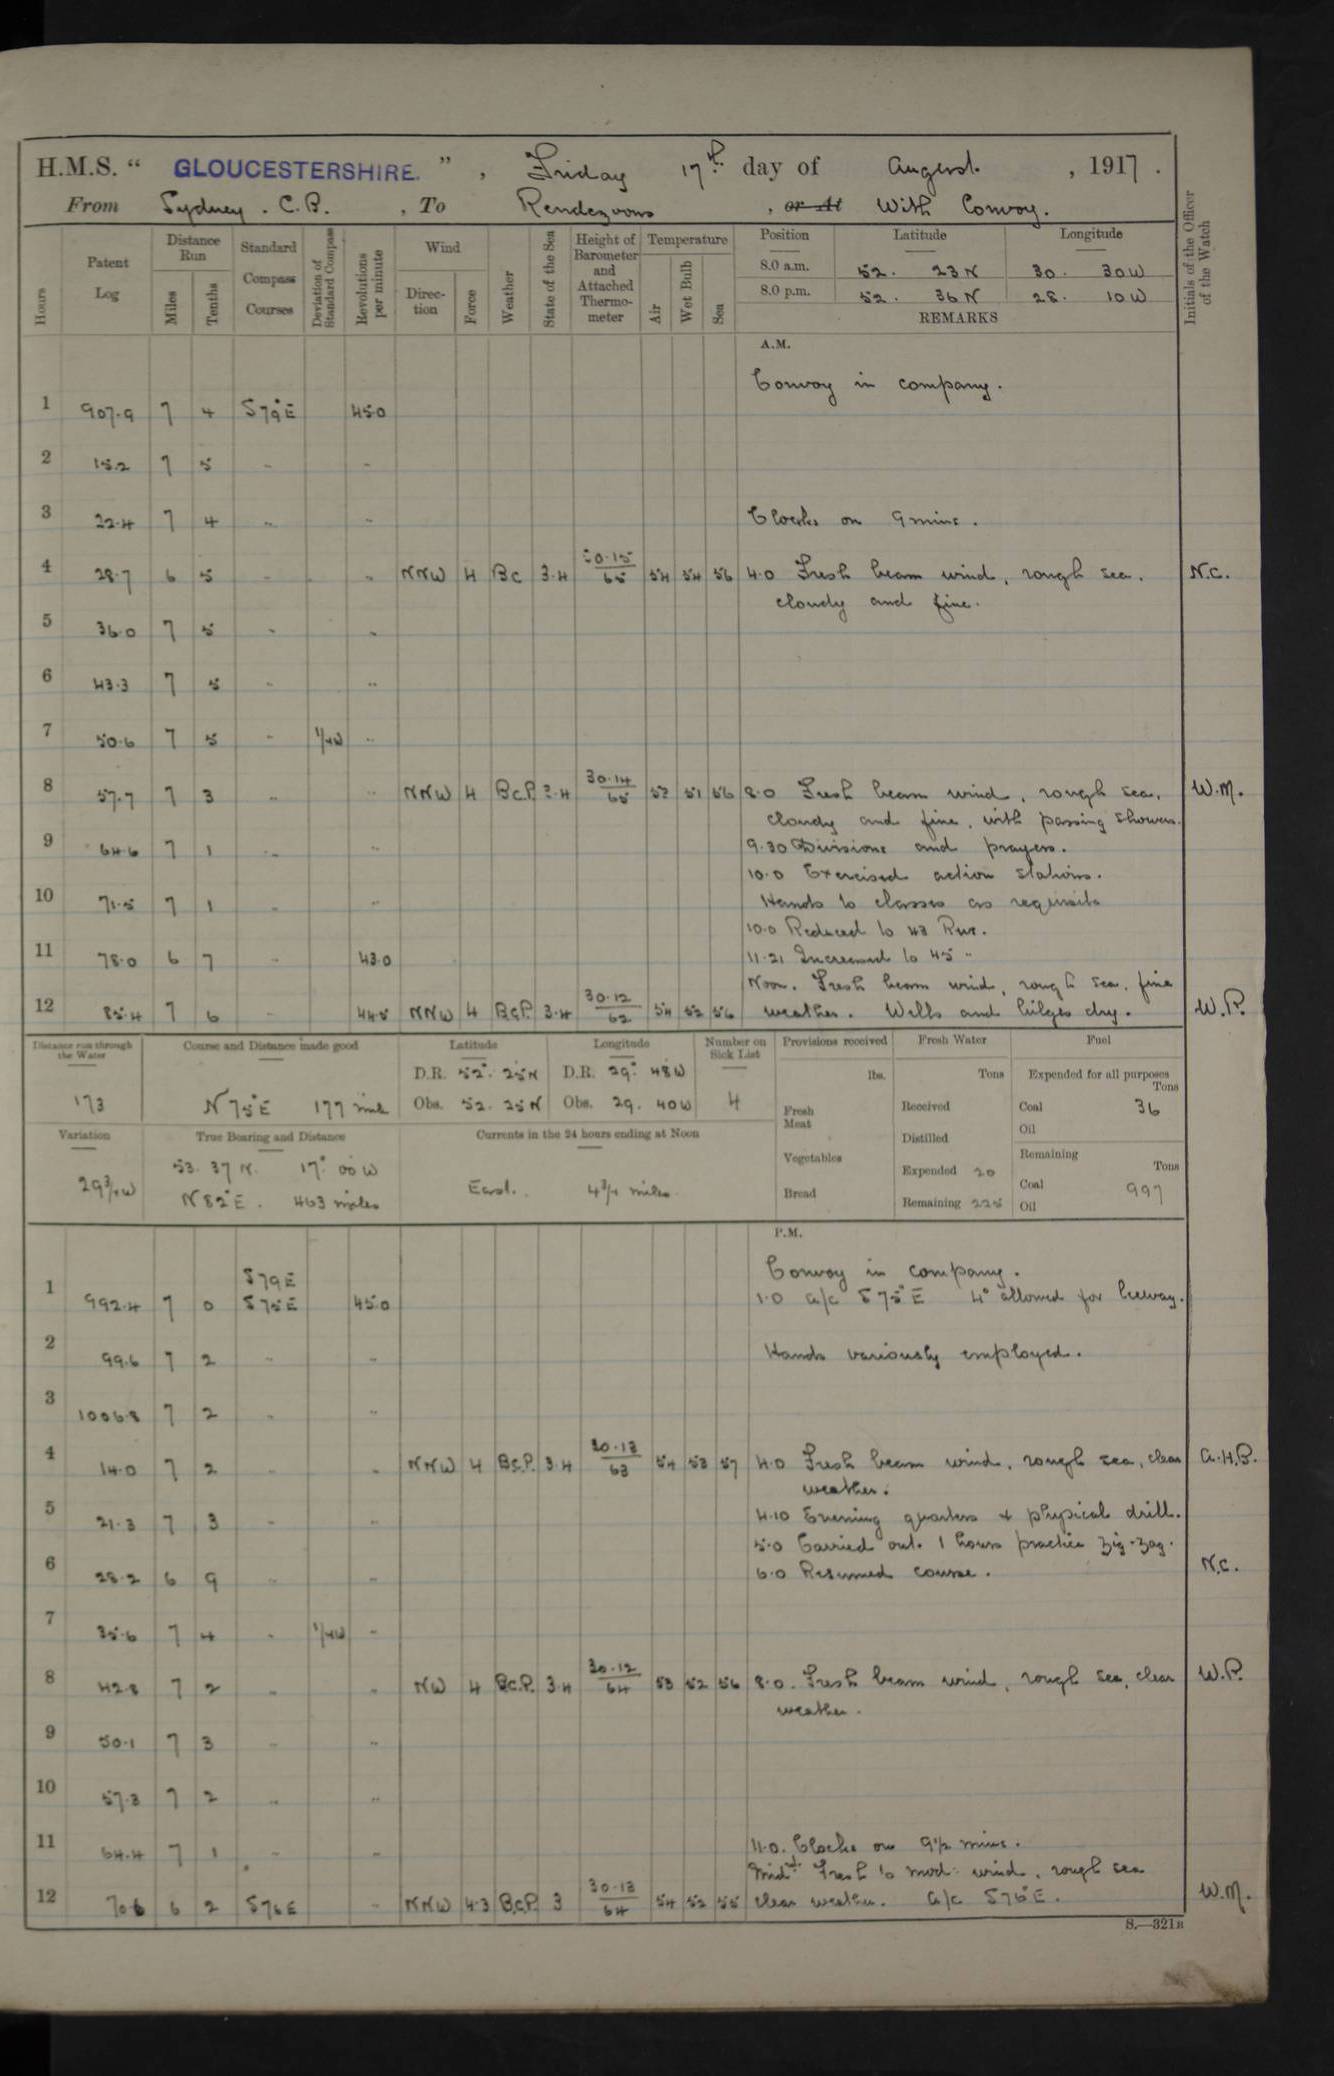 H.M.S. “ GLOUCESTERSHIRE. ” , Friday 17th day of August , 1917 .
From Sydney . C.B. , To Rendezvous , or At With Convoy.
Hours Patent Log Distance Run Miles Tenths Standard Compass Courses Deviation of Standard Compass Revolutions per minute Wind Direction Force Weather State of the Sea Height of Barometer and Attached Thermometer Temperature Air Wet Bulb Sea Position Latitude Longitude Initials of the Officer of the Watch
8.0 a.m. 52 . 23 N 30 . 30 W
8.0 p.m. 52 . 36 N 28 . 10 W
REMARKS
A.M.
Convoy in company .
1 907.9 7 4 S 79° E 45.0
2 15.2 7 5 " "
3 22.4 7 4 " " Clocks on 9 mins .
4 28.7 6 5 " " NNW 4 Bc 3.4 30.15/65 54 54 56 4.0 Fresh beam wind, rough sea. N.C.
cloudy and fine.
5 36.0 7 5 " "
6 43.3 7 5 " "
7 50.6 7 5 " 1/4W "
8 57.7 7 3 " " NNW 4 Bc.P. 3.4 30.14/65 52 51 56 8.0 Fresh beam wind, rough sea, W.M.
cloudy and fine, with passing showers.
9 64.6 7 1 " " 9.30 Divisions and prayers.
10.0 Exercised action stations.
10 71.5 7 1 " " Hands to classes as requisite
10.0 Reduced to 43 Rev.
11 78.0 6 7 " 43.0 11.21 Increased to 45 "
Noon. Fresh beam wind, rough sea, fine
12 85.4 7 6 " 44.5 NNW 4 Bc.P. 3.4 30.12/62 54 52 56 weather. Wells and bilges dry. W.P.
Distance run through the Water Course and Distance made good Latitude Longitude Number on Sick List Provisions received Fresh Water Fuel
D.R. 52° . 25 N D.R. 29° 48 W lbs. Tons Expended for all purposes Tons
173 N 75° E 177 mile Obs. 52 . 25 N Obs. 29 . 40 W 4 Fresh Meat Received Coal 36
Oil
Variation True Bearing and Distance Currents in the 24 hours ending at Noon Distilled
Vegetables Remaining Tons
29 3/4 W 53 . 37 N. 17° 00 W Expended 20
N 82° E . 463 miles East. 4 3/4 miles Bread Remaining 225 Coal 997
Oil
P.M.
S 79 E Convoy in company.
1 992.4 7 0 S 75 E 45.0 1.0 a/c S 75° E 4° allowed for leeway.
2 99.6 7 2 " " Hands variously employed.
3 1006.8 7 2 " "
4 14.0 7 2 " " NNW 4 Bc.P. 3.4 30.13/63 54 53 57 4.0 Fresh beam wind, rough sea, clear A.H.B.
weather.
5 21.3 7 3 " " 4.10 Evening quarters & physical drill.
5.0 Carried out 1 hours practice zig-zag.
6 28.2 6 9 " " 6.0 Resumed course. N.C.
7 35.6 7 4 " 1/4W "
8 42.8 7 2 " " NW 4 Bc.P. 3.4 30.12/64 53 52 56 8.0. Fresh beam wind, rough sea, clear W.P.
weather.
9 50.1 7 3 " "
10 57.3 7 2 " "
11 64.4 7 1 " " 11.0. Clocks on 9½ mins.
Midt. Fresh to mod: wind, rough sea
12 70.6 6 2 S 76 E " NNW 4.3 Bc.P. 3 30.13/64 54 52 55 clear weather. a/c S 76° E. W.M.
S.—321B